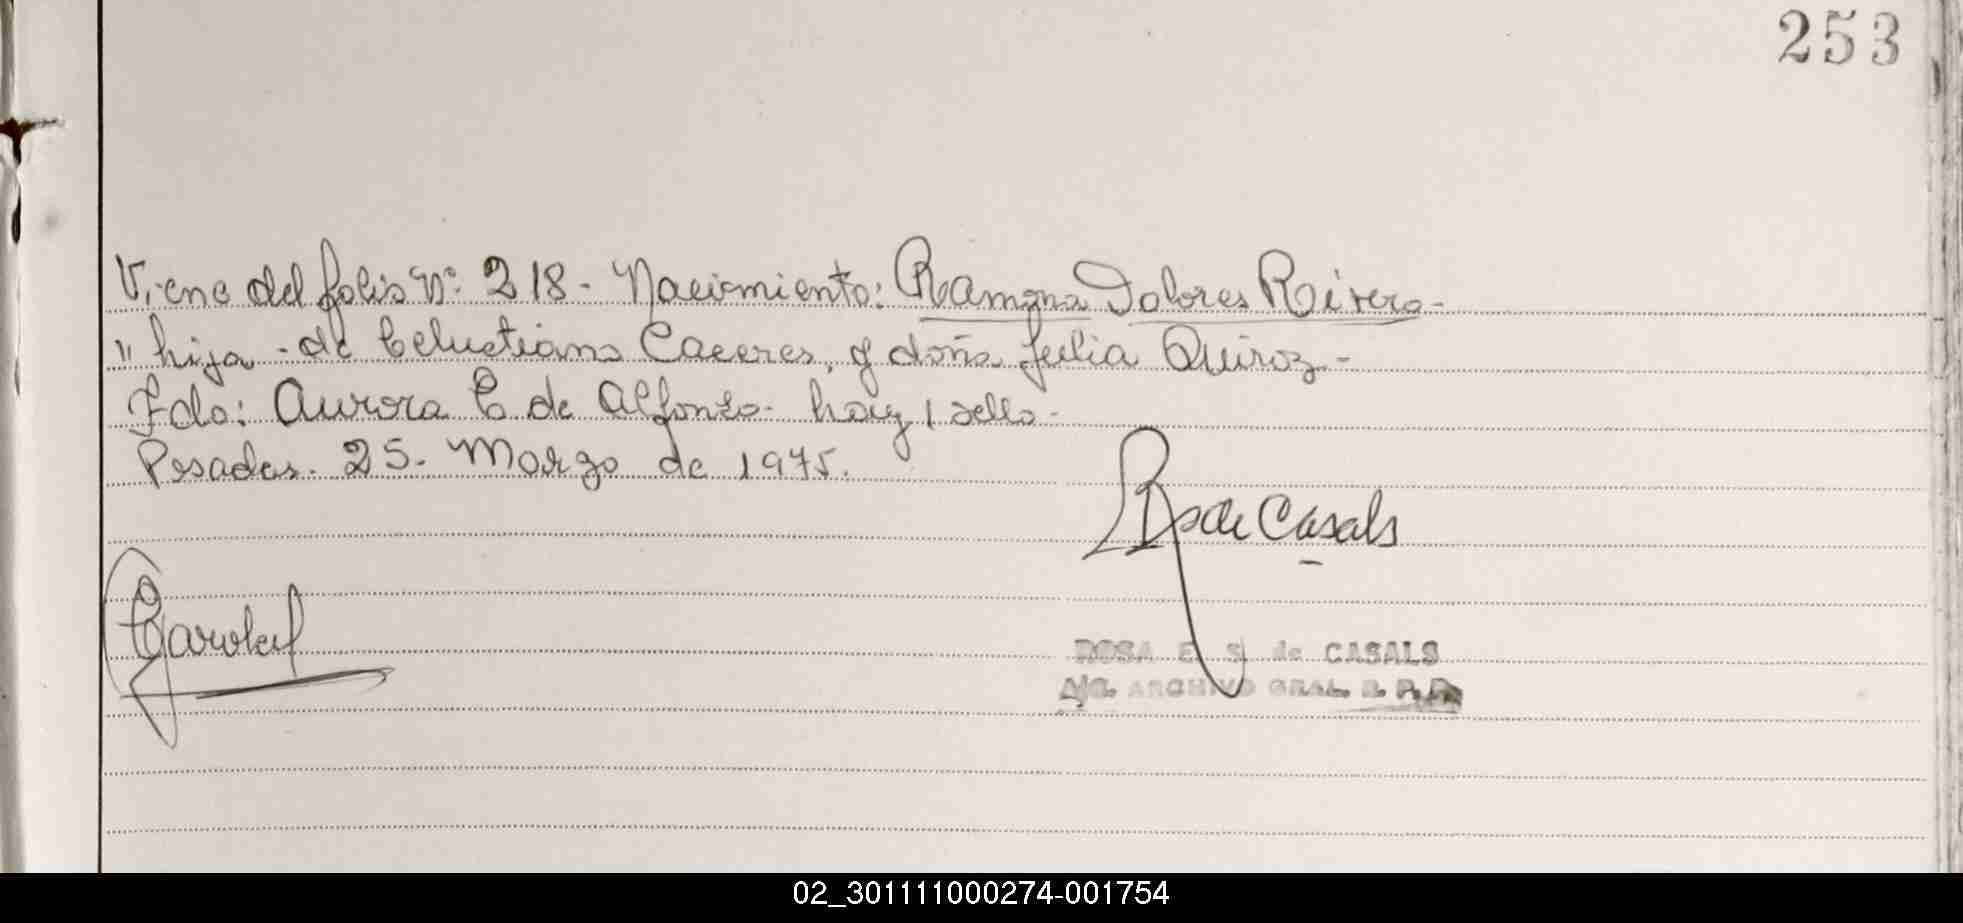 253
Viene del folio Nº: 218 - Nacimiento: Ramona Dolores Rivero -
" hija - de Celustiano Caceres, y doña Julia Quiroz -
Fdo: Aurora C de Alfonso - hay 1 sello -
Posadas - 25 - Marzo de 1975.
de Casals
ROSA E. S. de CASALS
A/C. ARCHIVO GRAL. R. P. P.
02_301111000274-001754